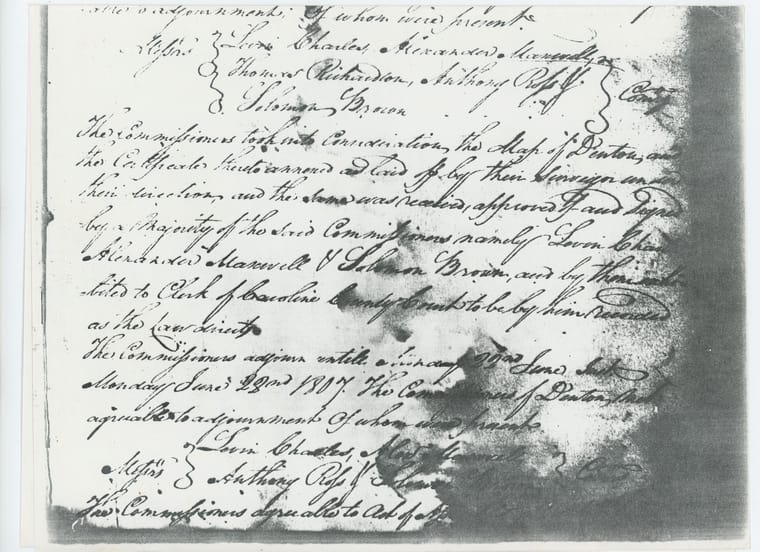 adjournments, Of whom were present
Messrs Levin Charles, Alexander Maxwell,
Thomas Richardson, Anthony Ross &
Solomon Brown
The Commissioners took into Consideration, the Map of Denton, and
the Certificate thereto annexed as laid off by their Surveyor under
their direction, and the same was received, approved of and Signed
by a Majority of the said Commissioners namely Levin
Alexander Maxwell & Solomon Brown, and by them
to Clerk of Caroline County Court to be by him recorded
as the Law directs
The Commissioners adjourn untill Monday 22nd June Inst
Monday June 22nd 1807. The Commissioners of Denton, met
agreable to adjournment Of whom were present
Messrs Levin Charles,
Anthony Ross &
The Commissioners agreable to Act of